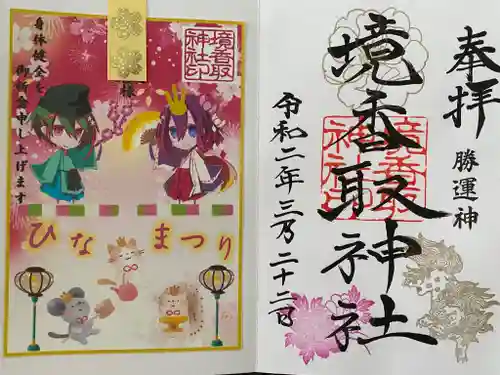 奉拝
勝運神
境香取神社
境香取神社印
令和二年三乃二十二日
境香取神社印
様
身体健全を
御祈念申し上げます
ひなまつり